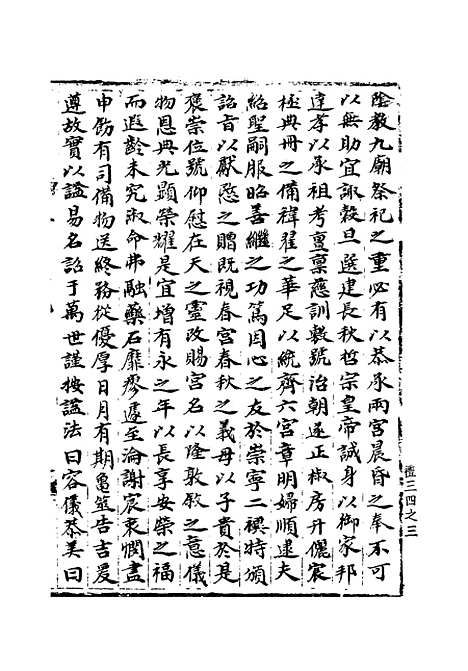 陰教九廟祭祀之重必有以恭承兩宮晨昏之奉不可
以無助宜諏穀旦選建長秋哲宗皇帝誠身以御家邦
達孝以承祖考亶稟慈訓敷號治朝遂正椒房升儷宸
極典冊之備褘翟之華足以統齊六宮章明婦順逮夫
紹聖嗣服昭善繼之功篤因心之友於崇寧二禩特頒
詔旨以厭愍之贈既視春宮春秋之義母以子貴於是
褒崇位號仰慰在天之靈改賜宮名以隆敦敘之意儀
物恩典光顯榮耀是宜增有永之年以長享安榮之福
而遐齡未究淑命弗融藥石靡瘳遽至淪謝宸衷憫盡
申飭有司備物送終務從優厚日月有期龜筮告吉爰
遵故實以謚易名詔于萬世謹按謚法曰容儀恭美曰
禮三四之三